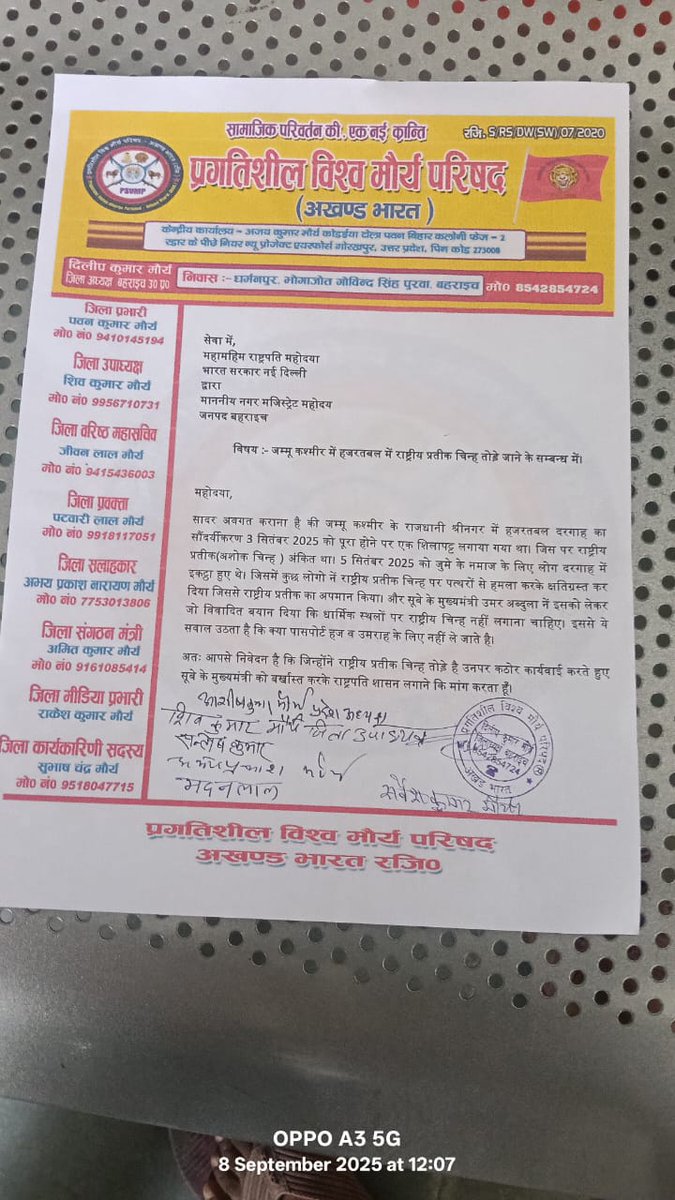 सामाजिक परिवर्तन की, एक नई क्रान्ति
रजि. S/RS/DW(SW)/07/2020
प्रगतिशील विश्व मौर्य परिषद
(अखण्ड भारत)
PSVMP
केन्द्रीय कार्यालय - अजय कुमार मौर्य कोडईया टोला पवन बिहार कलोनी फेज - 2
रडार के पीछे नियर न्यू प्रोजेक्ट एयरफोर्स गोरखपुर, उत्तर प्रदेश, पिन कोड 273008
दिलीप कुमार मौर्य
जिला अध्यक्ष बहराइच उ0 प्र0
निवास :- धर्मनपुर, भोगाजोत गोविन्द सिंह पुरवा, बहराइच मो0 8542854724
जिला प्रभारी
पवन कुमार मौर्य
मो0 नं0 9410145194
जिला उपाध्यक्ष
शिव कुमार मौर्य
मो0 नं0 9956710731
जिला वरिष्ठ महासचिव
जीवन लाल मौर्य
मो0 नं0 9415436003
जिला प्रवक्ता
पटवारी लाल मौर्य
मो0 नं0 9918117051
जिला सलाहकार
अभय प्रकाश नारायण मौर्य
मो0 नं0 7753013806
जिला संगठन मंत्री
अमित कुमार मौर्य
मो0 नं0 9161085414
जिला मीडिया प्रभारी
राकेश कुमार मौर्य
जिला कार्यकारिणी सदस्य
सुभाष चंद्र मौर्य
मो0 नं0 9518047715
सेवा में,
महामहिम राष्ट्रपति महोदया
भारत सरकार नई दिल्ली
द्वारा
माननीय नगर मजिस्ट्रेट महोदय
जनपद बहराइच
विषय :- जम्मू कश्मीर में हजरतबल में राष्ट्रीय प्रतीक चिन्ह तोड़े जाने के सम्बन्ध में।
महोदया,
सादर अवगत कराना है की जम्मू कश्मीर के राजधानी श्रीनगर में हजरतबल दरगाह का
सौंदर्यीकरण 3 सितंबर 2025 को पूरा होने पर एक शिलापट्ट लगाया गया था। जिस पर राष्ट्रीय
प्रतीक(अशोक चिन्ह ) अंकित था। 5 सितंबर 2025 को जुमे के नमाज के लिए लोग दरगाह में
इकट्ठा हुए थे। जिसमें कुछ लोगो नें राष्ट्रीय प्रतीक चिन्ह पर पत्थरों से हमला करके क्षतिग्रस्त कर
दिया जिससे राष्ट्रीय प्रतीक का अपमान किया। और सूबे के मुख्यमंत्री उमर अब्दुला नें इसको लेकर
जो विवादित बयान दिया कि धार्मिक स्थलों पर राष्ट्रीय चिन्ह नहीं लगाना चाहिए। इससे ये
सवाल उठता है कि क्या पासपोर्ट हज व उमराह के लिए नहीं ले जाते है।
अतः आपसे निवेदन है कि जिन्होंने राष्ट्रीय प्रतीक चिन्ह तोड़े है उनपर कठोर कार्यवाई करते हुए
सूबे के मुख्यमंत्री को बर्खास्त करके राष्ट्रपति शासन लगाने कि मांग करता हूँ।
आशीष कुमार मौर्य प्रदेश अध्यक्ष
शिव कुमार मौर्य जिला उपाध्यक्ष
सन्तोष कुमार
मदनलाल
सर्वेश कुमार मौर्य
प्रगतिशील विश्व मौर्य परिषद
दिलीप कुमार मौर्य
जिलाध्यक्ष बहराइच
8542854724
अखंड भारत
प्रगतिशील विश्व मौर्य परिषद
अखण्ड भारत रजि0
OPPO A3 5G
8 September 2025 at 12:07